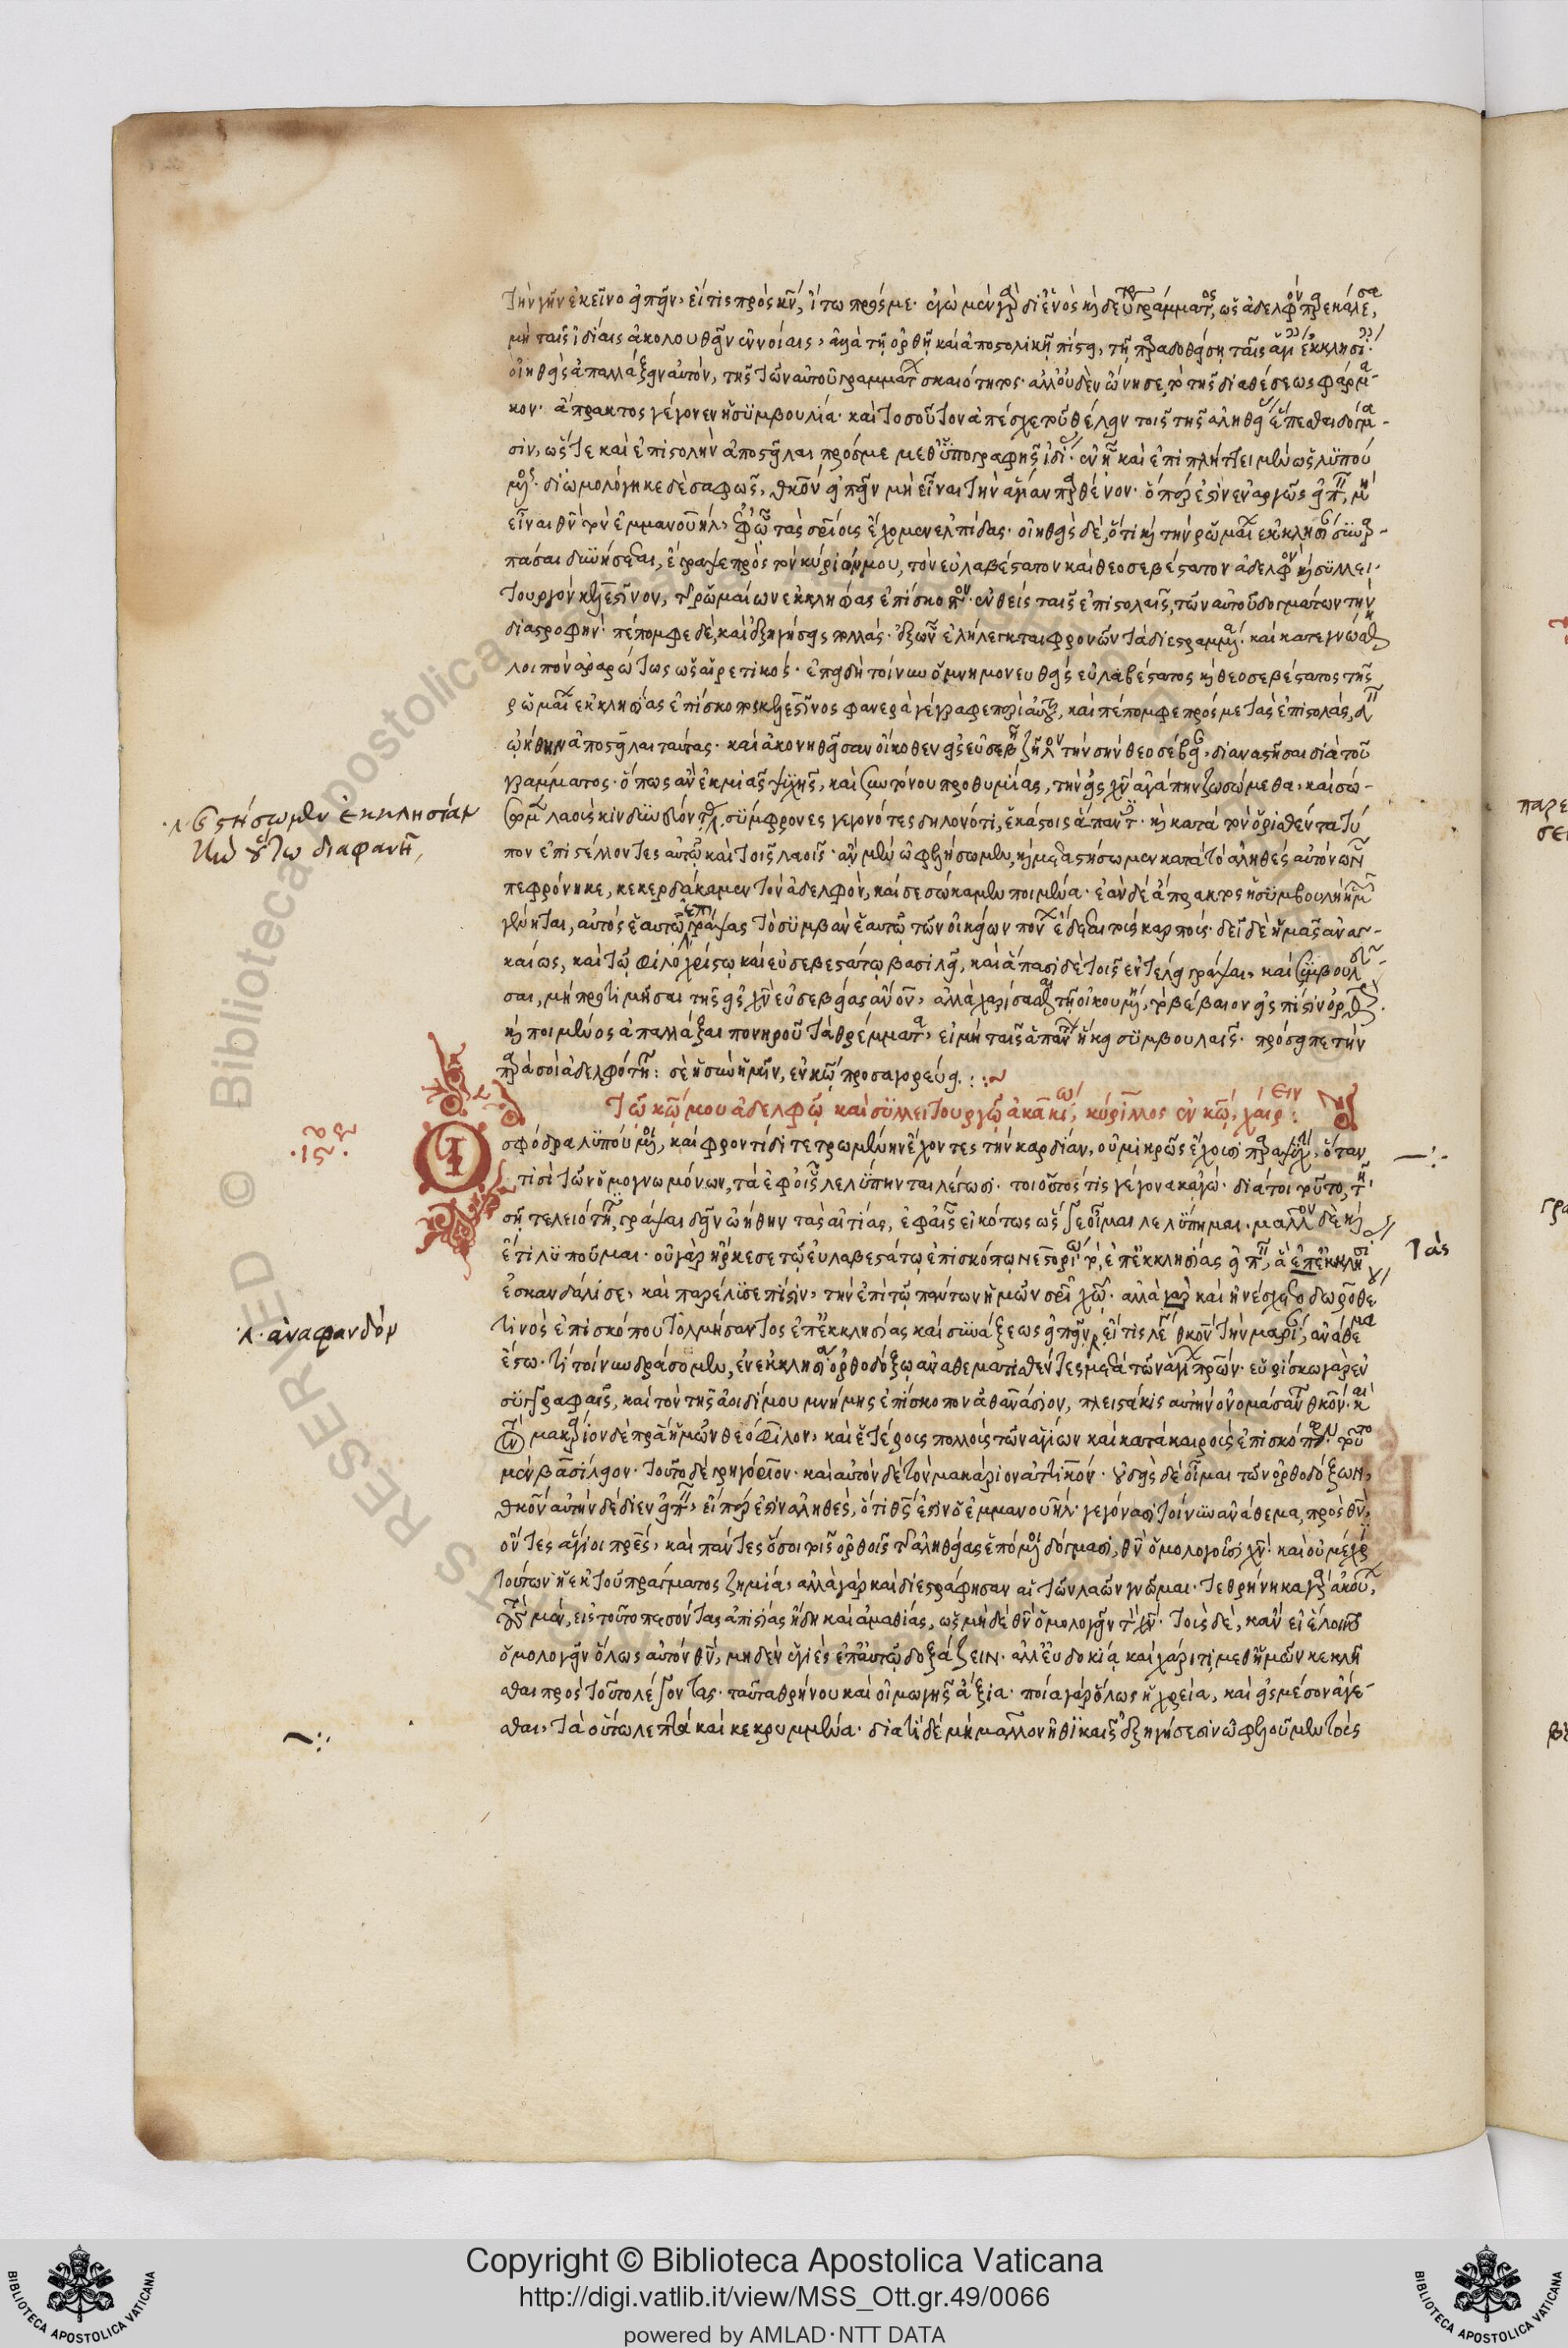 τὴν γῆν ἐκεῖνο εἰπεῖν, εἴ τις πρὸς κν̅, ἴτω πρός με. ἐγὼ μὲν γὰρ δι' ἑνὸς καὶ δευτέρου γράμματος, ὡς ἀδελφὸν παρεκάλεσα,
μὴ ταῖς ἰδίαις ἀκολουθεῖν ἐννοίαις, ἀλλὰ τῇ ὀρθῇ καὶ ἀποστολικῇ πίστει, τῇ παραδοθείσῃ ταῖς ἁγίαις ἐκκλησίαις.
οἰηθεὶς ἀπαλλάξειν αὐτὸν, τῆς τῶν αὐτοῦ γραμμάτων σκαιότητος. ἀλλ' οὐδὲν ὤνησε, τὸ τῆς διαθέσεως φάρμα-
κον. ἄπρακτος γέγονεν ἡ συμβουλία. καὶ τοσοῦτον ἀπέσχε τοῦ θέλειν τοῖς τῆς ἀληθείας ἕπεσθαι δόγμα-
σιν, ὥστε καὶ ἐπιστολὴν ἀποστεῖλαι πρός με μεθ' ὑπογραφῆς ἰδίας. ἐν ᾗ καὶ ἐπιπλήττει μὲν ὡς λυπού
μενος. διωμολόγηκε δὲ σαφῶς, θκον̅ εἰπεῖν μὴ εἶναι τὴν ἁγίαν παρθένον. ὅπερ ἐστὶν ἐναργῶς εἰπεῖν, μὴ
εἶναι θν̅ τὸν ἐμμανουήλ, ἐφ' ᾧ τὰς σρίοις ἔχομεν ἐλπίδας. οἰηθεὶς δὲ, ὅτι καὶ τὴν ῥωμαίων ἐκκλησίαν συναρ-
πάσαι δυνήσεται, ἔγραψε πρὸς τὸν κύριόν μου, τὸν εὐλαβέστατον καὶ θεοσεβέστατον ἀδελφὸν καὶ συλλει-
τουργὸν κελεστῖνον, τῆς ῥωμαίων ἐκκλησίας ἐπίσκοπον. ἐνθεὶς ταῖς ἐπιστολαῖς, τῶν αὐτοῦ δογμάτων τὴν
διαστροφήν. πέπομφε δὲ, καὶ ἐξηγήσεις πολλάς. ἐξ ὧν ἐλήλεγκται φρονῶν τὰ διεστραμμένα. καὶ κατεγνώσθη
λοιπὸν ἀραρότως ὡς αἱρετικός. ἐπειδὴ τοίνυν ὁ μνημονευθεὶς εὐλαβέστατος καὶ θεοσεβέστατος τῆς
ῥωμαίων ἐκκλησίας ἐπίσκοπος κελεστῖνος φανερὰ γέγραφε περὶ αὐτοῦ, καὶ πέπομφε πρός με τὰς ἐπιστολὰς, δεῖν
ᾠήθην ἀποστεῖλαι ταύτας. καὶ ἀκονηθεῖσαν οἴκοθεν εἰς εὐσεβῆ ζῆλον τὴν σὴν θεοσέβειαν, διαναστῆσαι διὰ τοῦ
γράμματος. ὅπως ἂν ἐκ μιᾶς ψυχῆς, καὶ συντόνου προθυμίας, τὴν εἰς χν̅ ἀγάπην ζωσώμεθα, καὶ σώ-
σωμεν λαοῖς κινδυνεύουσι, σύμφρονες γεγονότες δηλονότι, ἑκάστοις ἅπαντες. καὶ κατὰ τὸν ὁρισθέντα τύ
πον ἐπιστέλλοντες αὐτῷ καὶ τοῖς λαοῖς. ἂν μὲν ὠφελήσωμεν, καὶ μεταστήσωμεν κατὰ τὸ ἀληθὲς αὐτὸν ὧν
πεφρόνηκε, κεκερδάκαμεν τὸν ἀδελφὸν, καὶ σεσώκαμεν ποιμένα. ἐὰν δὲ ἄπρακτος ἡ συμβουλὴ ἡμῶν
γένηται, αὐτὸς ἑαυτῷ ἐπιγράψας τὸ συμβὰν ἑαυτῷ τῶν οἰκείων πόνων ἔδεται τοὺς καρπούς. δεῖ δὲ ἡμᾶς ἀναγ-
καίως, καὶ τῷ φιλοχρίστῳ καὶ εὐσεβεστάτῳ βασιλεῖ, καὶ ἅπασι δὲ τοῖς ἐν τέλει γράψαι, καὶ συμβουλεῦ-
σαι, μὴ προτιμῆσαι τῆς εἰς χν̅ εὐσεβείας ἄνον̅, ἀλλὰ χαρίσασθαι τῇ οἰκουμένῃ, τὸ βέβαιον εἰς πίστιν ὀρθήν.
καὶ ποιμένος ἀπαλλάξαι πονηροῦ τὰ θρέμματα, εἰ μὴ ταῖς ἁπάντων εἴκει συμβουλαῖς. πρόσειπε τὴν
παρὰ σοὶ ἀδελφότητα: σὲ ἡ σὺν ἡμῖν, ἐν κω̅ προσαγορεύει. :~
Τῷ κω̅ μου ἀδελφῷ καὶ συλλειτουργῷ ἀκακίω, κύριλλος ἐν κω̅, χαίρειν:
σφόδρα λυπούμενοι, καὶ φροντίδι τετρωμένην ἔχοντες τὴν καρδίαν, οὐ μικρῶς ἔχουσι παραψυχὴν, ὅταν
τισὶ τῶν ὁμογνωμόνων, τὰ ἐφ' οἷς λελύπηνται λέγωσι. τοιοῦτός τις γέγονα κἀγώ. διά τοι τοῦτο, τῇ
σῇ τελειότητι, γράψαι δεῖν ᾠήθην τὰς αἰτίας, ἐφ' αἷς εἰκότως ὥς γε οἶμαι λελύπημαι. μᾶλλον δὲ καὶ
ἔτι λυποῦμαι. οὐ γὰρ ἤρκεσε τῷ εὐλαβεστάτῳ ἐπισκόπῳ νεστορίω τὸ, ἐπ' ἐκκλησίας εἰπεῖν, ἃ ἐπ' ἐκκλησίου
ἐσκανδάλισε, καὶ παρέλυσε πίστιν, τὴν ἐπὶ τῷ πάντων ἡμῶν σρι̅ χω̅. ἀλλὰ γὰρ καὶ ἠνέσχετο δωροθέου
τινὸς ἐπισκόπου τολμήσαντος ἐπ' ἐκκλησίας καὶ συνάξεως εἰπεῖν, εἴ τις λέγει θκον̅ τὴν μαρίαν, ἀνάθεμα
ἔστω. τί τοίνυν δράσομεν, ἐν ἐκκλησίᾳ ὀρθοδόξῳ ἀναθεματισθέντες μετὰ τῶν ἁγίων πρων̅. εὑρίσκω γὰρ ἐν
συγγραφαῖς, καὶ τὸν τῆς ἀοιδίμου μνήμης ἐπίσκοπον ἀθανάσιον, πλειστάκις αὐτὴν ὀνομάσαντα θκον̅. καὶ
τὸν μακάριον δὲ πρα̅ ἡμῶν θεόφιλον, καὶ ἑτέρους πολλοὺς τῶν ἁγίων καὶ κατὰ καιροὺς ἐπισκόπων. τοῦτο
μὲν βασίλειον. τοῦτο δὲ γρηγόριον. καὶ αὐτὸν δὲ τὸν μακάριον ἀττικόν. οὐδεὶς δὲ οἶμαι τῶν ὀρθοδόξων,
θκον̅ αὐτὴν δέδιεν εἰπεῖν, εἴπερ ἐστὶν ἀληθὲς, ὅτι θς̅ ἐστιν ὁ ἐμμανουήλ. γεγόνασι τοίνυν ἀνάθεμα, πρὸς θν̅
ὄντες ἅγιοι πρες̅, καὶ πάντες ὅσοι τοῖς ὀρθοῖς τῆς ἀληθείας ἑπόμενοι δόγμασι, θν̅ ὁμολογοῦσι χν̅. καὶ οὐ μέχρι
τούτων ἡ ἐκ τοῦ πράγματος ζημία, ἀλλὰ γὰρ καὶ διεστράφησαν αἱ τῶν λαῶν γνῶμαι. τεθρήνηκα γὰρ ἀκούων,
τοὺς μὲν, εἰς τοῦτο πεσόντας ἀπιστίας ἤδη καὶ ἀμαθίας, ὡς μηδὲ θν̅ ὁμολογεῖν τὸν χν̅. τοὺς δὲ, κἂν εἰ ἕλοιντο
ὁμολογεῖν ὅλως αὐτὸν θν̅, μηδὲν ὑγιὲς ἐπ' αὐτῷ δοξάζειν. ἀλλ' εὐδοκίᾳ καὶ χάριτι, μεθ' ἡμῶν κεκλῆ
σθαι πρὸς τοῦτο λέγοντας. ταῦτα θρήνου καὶ οἰμωγῆς ἄξια. ποία γὰρ ὅλως ἡ χρεία, καὶ εἰς μέσον ἄγε-
σθαι, τὰ οὕτω λεπτὰ καὶ κεκρυμμένα. διατί δὲ μὴ μᾶλλον ἠθικαῖς ἐξηγήσεσιν ὠφελοῦμεν τοὺς
στήσωμεν ἐκκλησίαν
διαφανῆ
ἀναφανδόν
τὰς
RESERVED © Biblioteca Apostolica Vaticana
Copyright © Biblioteca Apostolica Vaticana
http://digi.vatlib.it/view/MSS_Ott.gr.49/0066
powered by AMLAD·NTT DATA
BIBLIOTECA APOSTOLICA VATICANA
BIBLIOTECA APOSTOLICA VATICANA